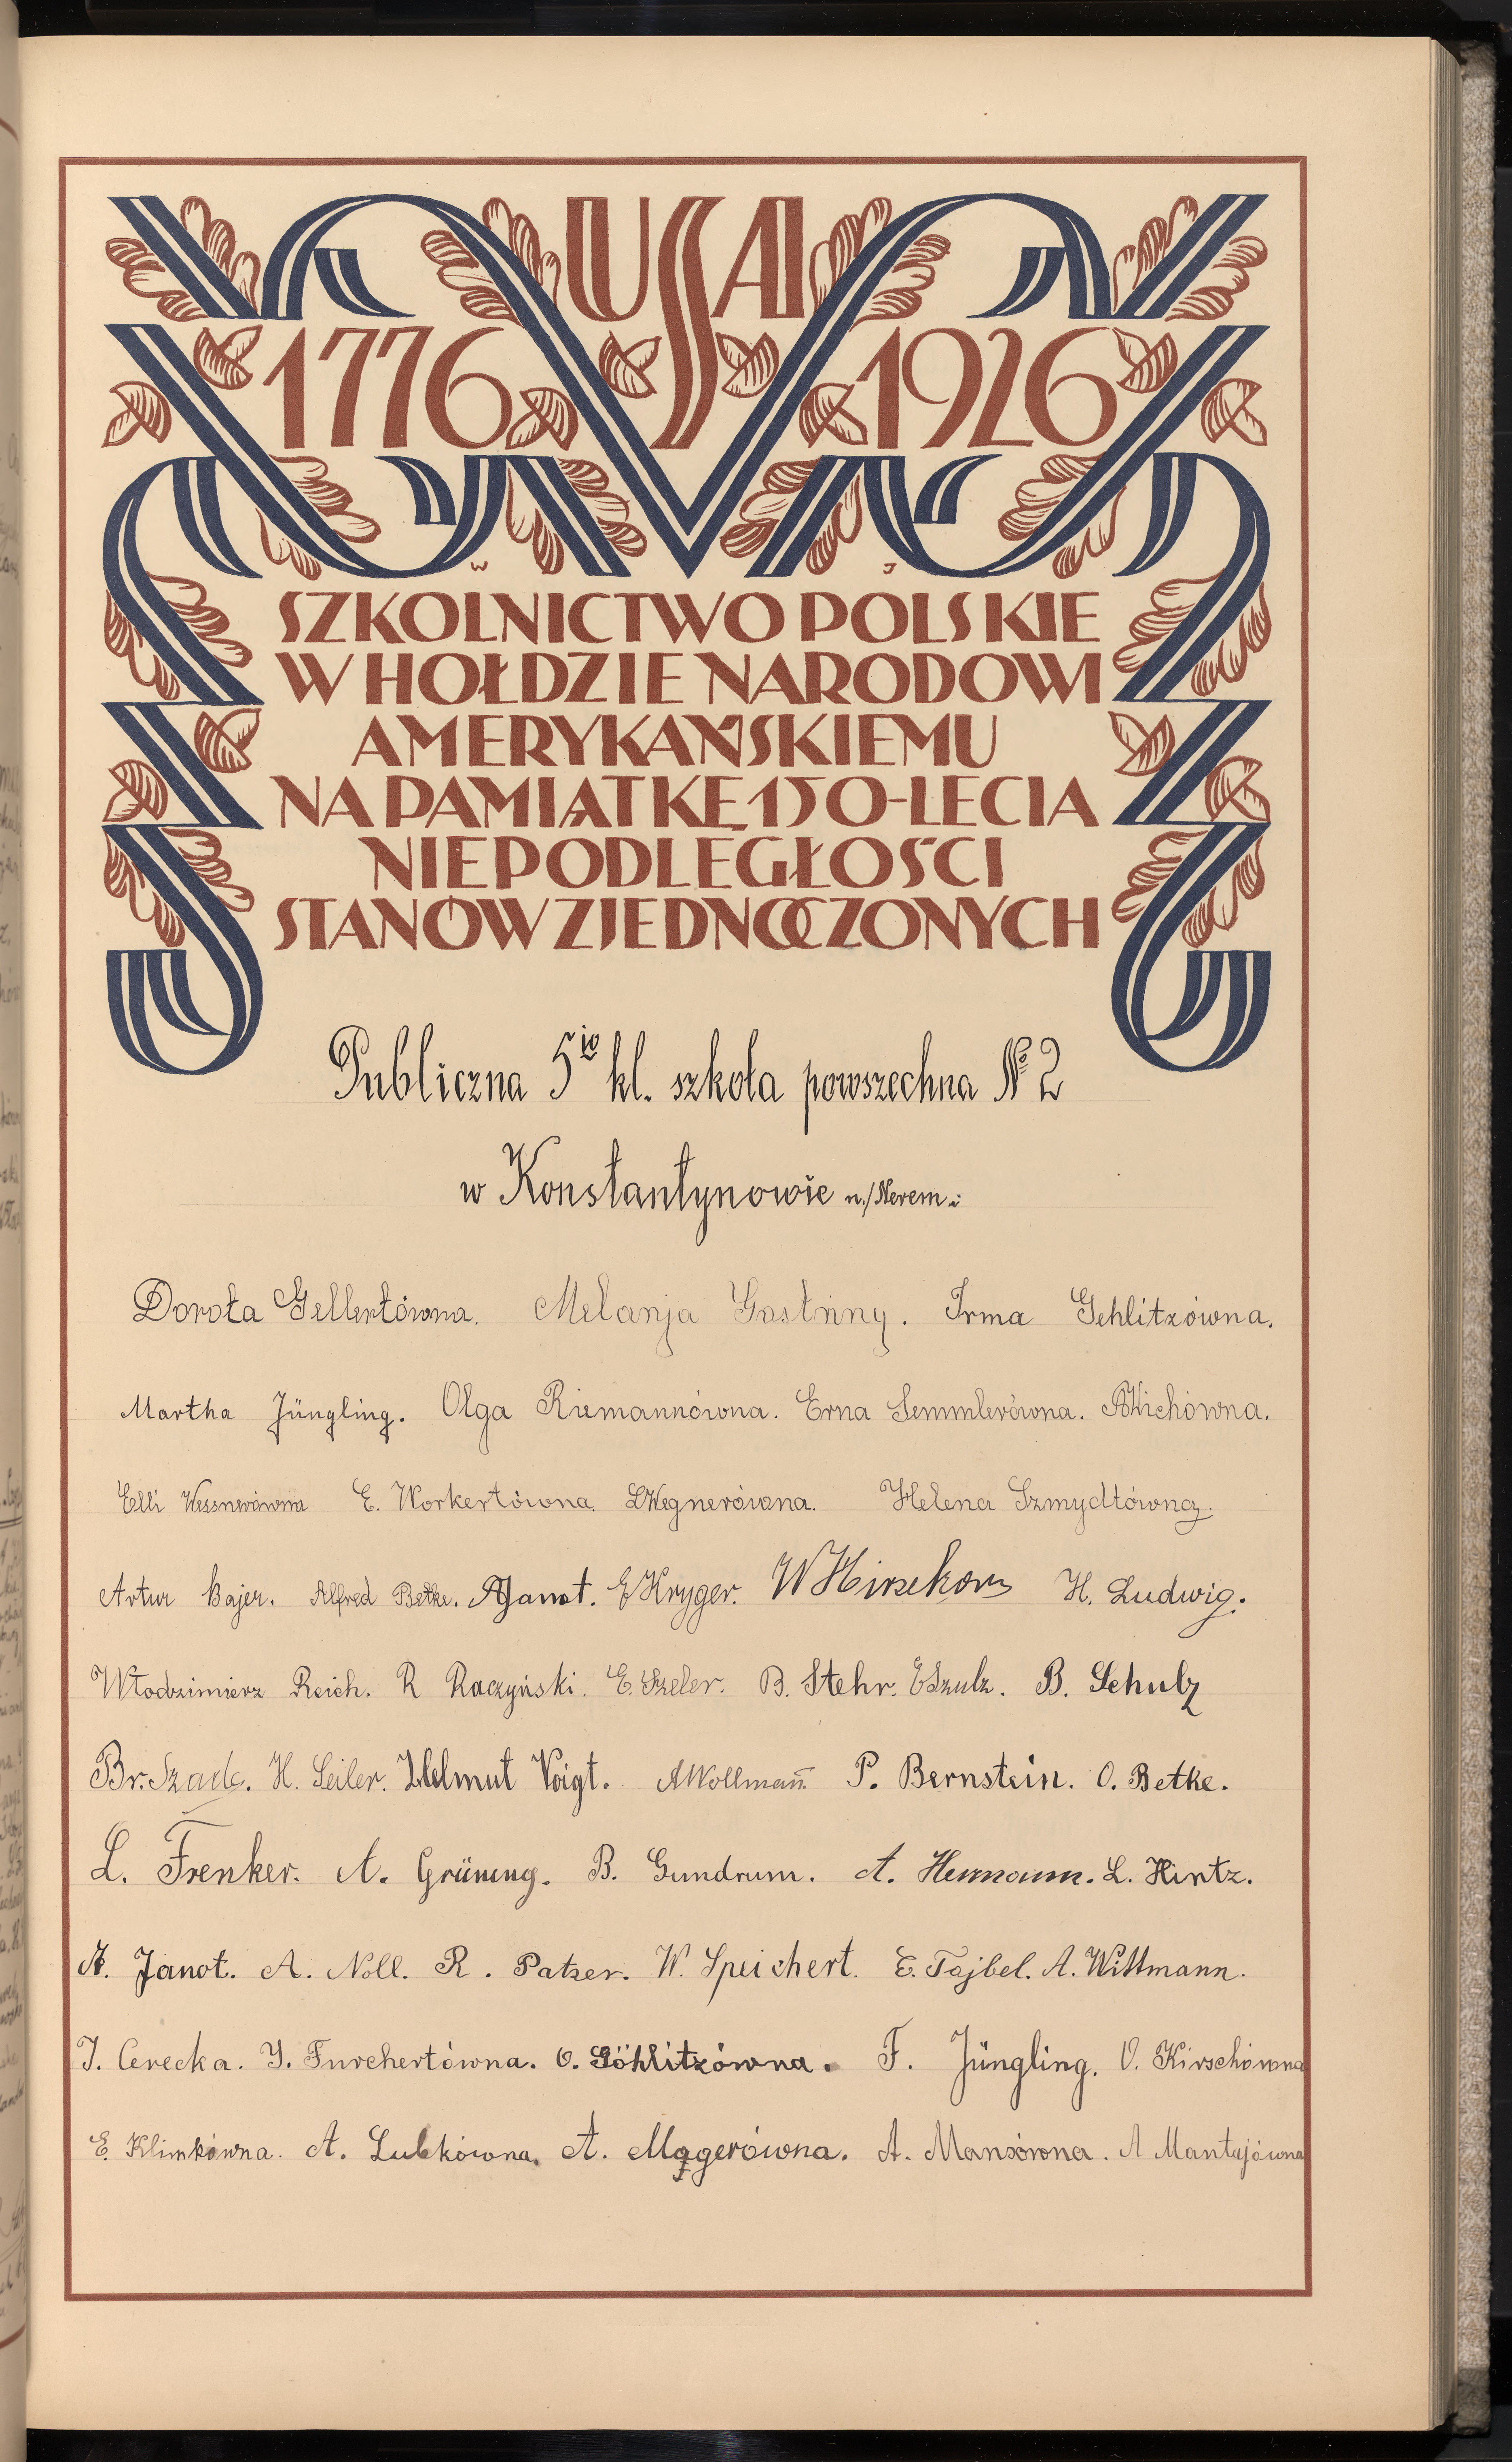 USA
1776 1926
W J
SZKOLNICTWO POLSKIE
W HOŁDZIE NARODOWI
AMERYKAŃSKIEMU
NA PAMIĄTKĘ 150-LECIA
NIEPODLEGŁOŚCI
STANÓW ZJEDNOCZONYCH
Publiczna 5io kl. szkoła powszechna № 2
w Konstantynowie n./Nerem.
Dorota Gellertówna. Melanja Gastinny. Irma Gehlitzówna.
Martha Jüngling. Olga Riemannówna. Erna Semmlerówna.
Elli Wessnerówna E. Workertówna. LWegnerówna. Helena Szmydtówna.
Artur Bajer. Alfred Betke. AJanot. EKryger. WHirsekorn H. Ludwig.
Włodzimierz Reich. R Raczyński. E. Szeler. B. Stehr. ESzulz. B. Schulz
Br. Szade. H. Seiler. Helmut Voigt. AWollmann. P. Bernstein. O. Betke.
L. Frenker. A. Grüning. B. Gundrum. A. Hermann. L. Hintz.
A. Janot. A. Noll. R. Patzer. W. Speichert. E. Tajbel. A. Wittmann.
J. Cerecka. J. Furchertówna. O. Göhlitzówna. F. Jüngling. O. Kirschówna
E. Klimkówna. A. Lubkówna. A. Magerówna. A. Manzówna. A Mantajówna